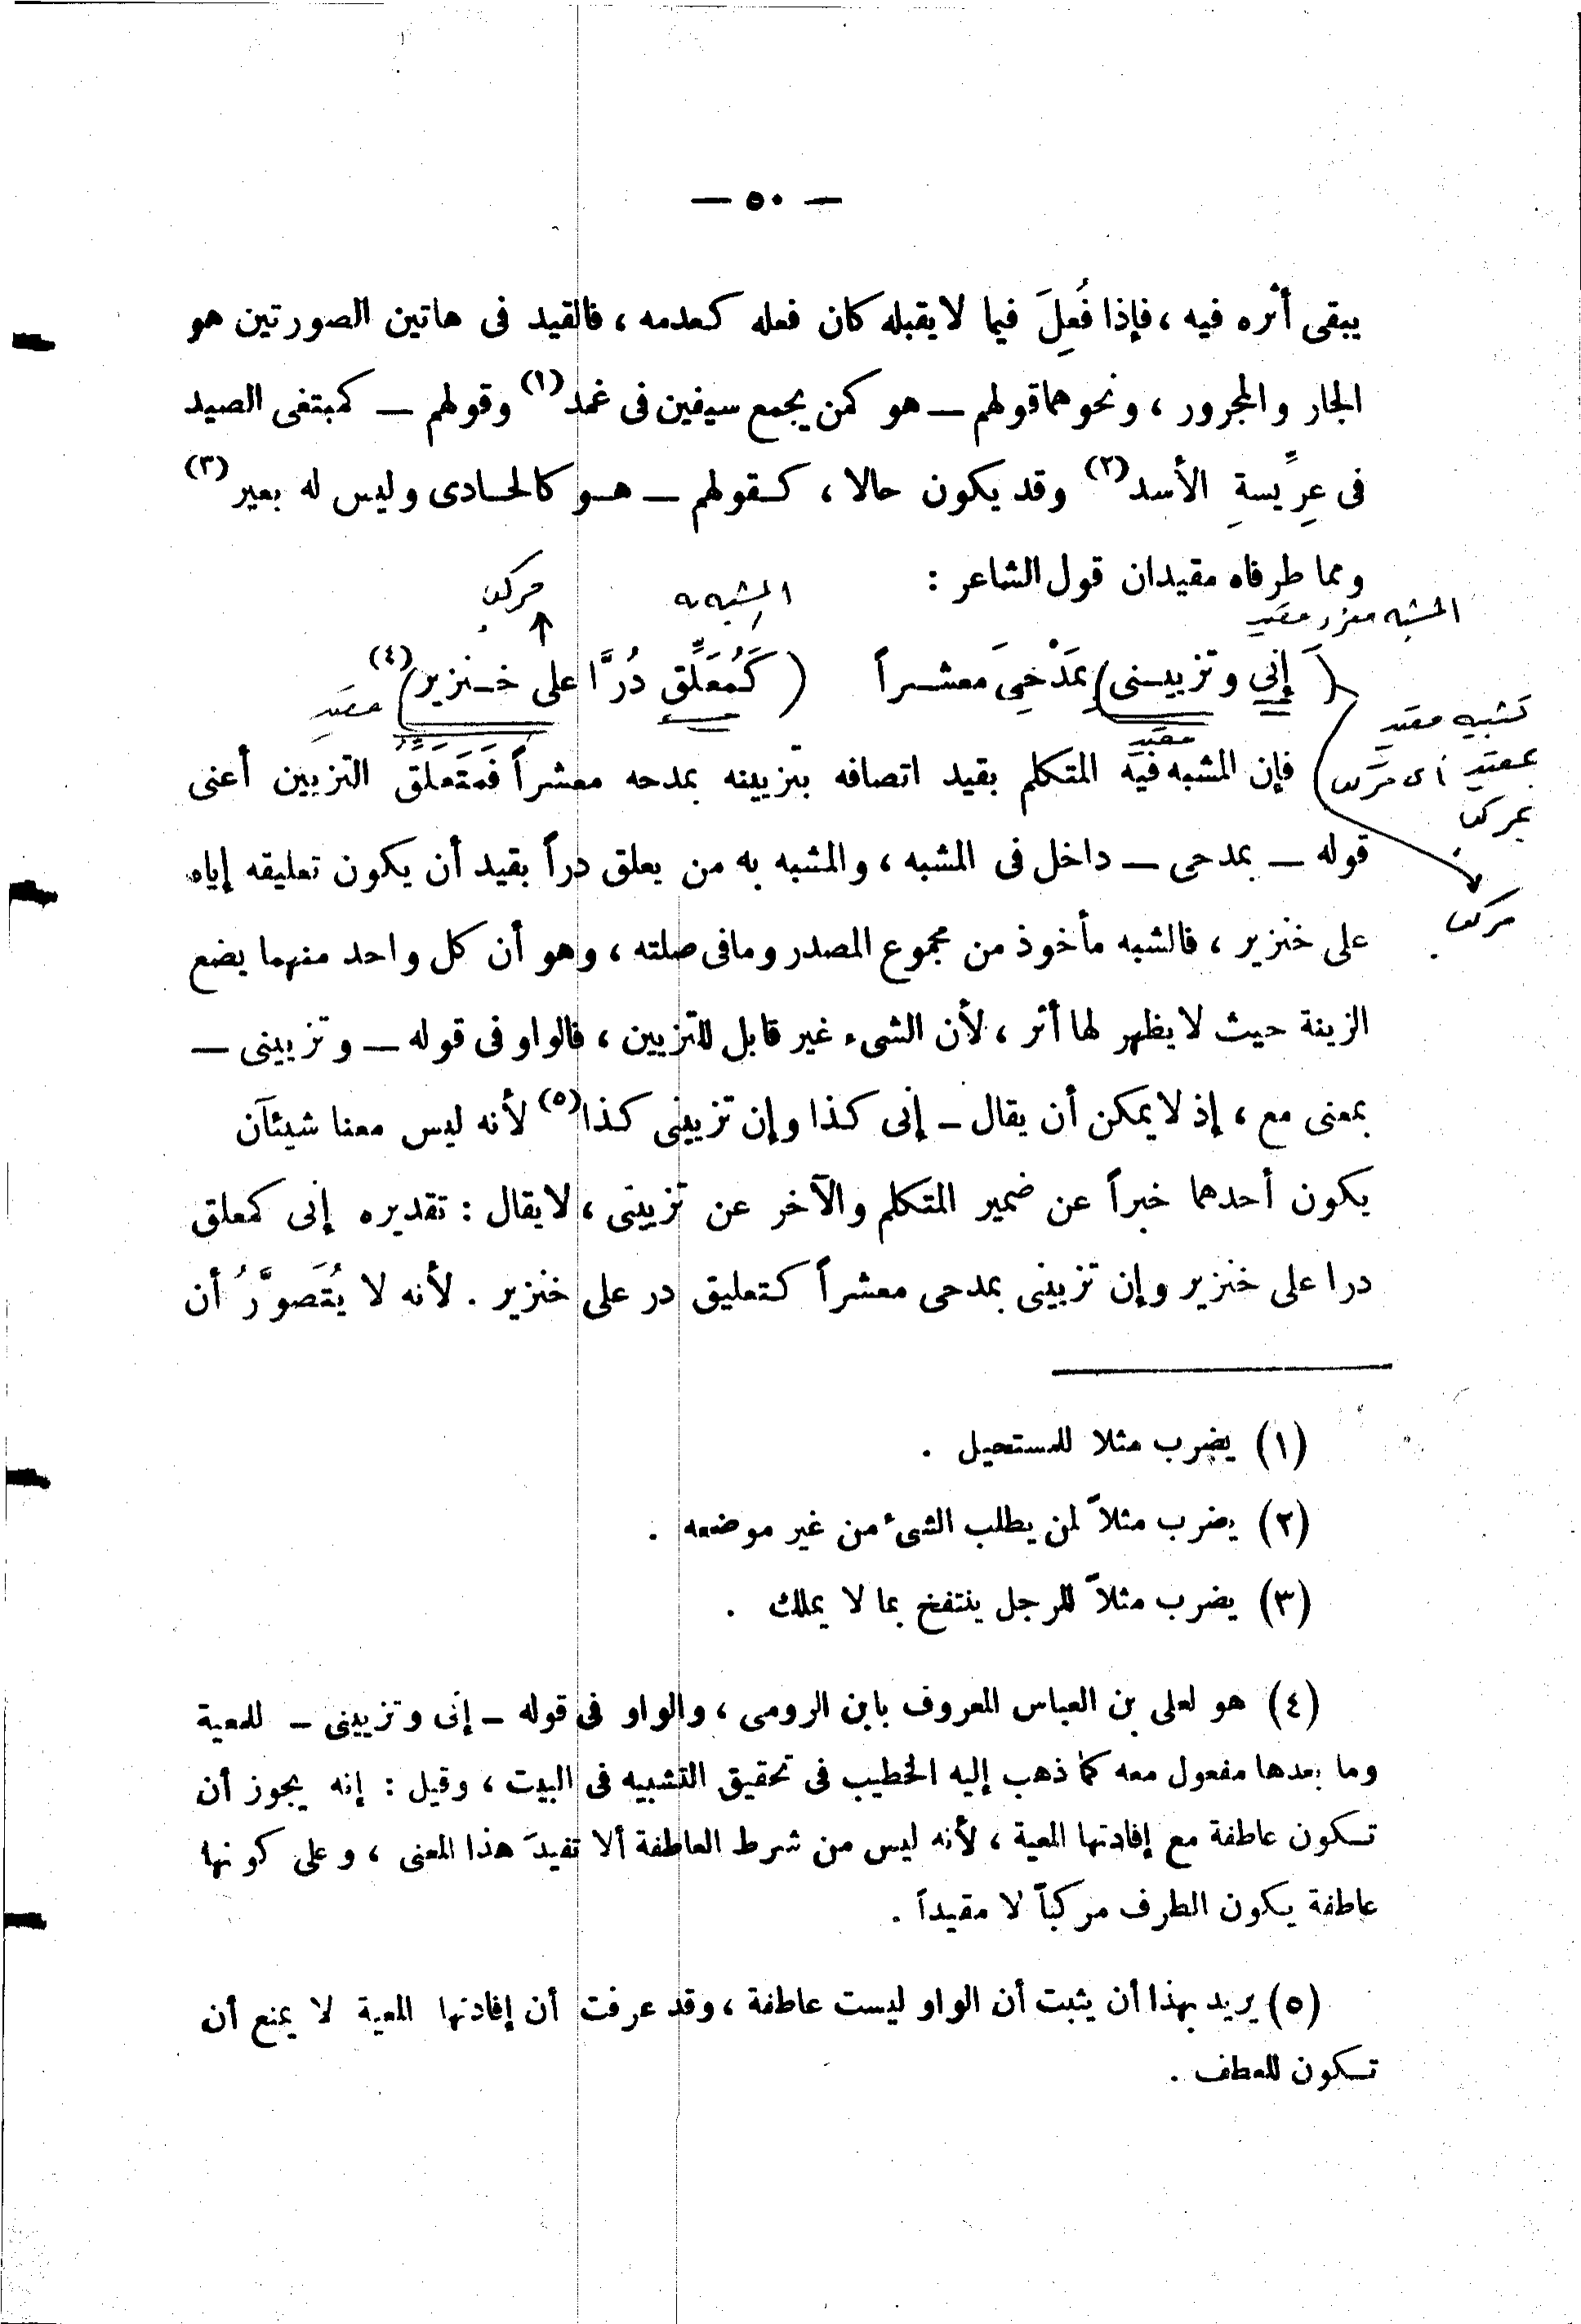 — ٥٠ —
يبقى أثره فيه ، فإذا فُعِلَ فيما لا يقبله كان فعله كعدمه ، فالقيد فى هاتين الصورتين هو
الجار والمجرور ، ونحوهما قولهم — هو كمن يجمع سيفين فى غمد (١) وقولهم — كمبتغى الصيد
فى عِرِّيسةِ الأسد (٢) وقد يكون حالا ، كقولهم — هو كالحادى وليس له بعير (٣)
ومما طرفاه مقيدان قول الشاعر :
المشبه به
مركب
المشبه مفرد مقيد
( إِنِّي وتزيينى ) بِمَدْحِىَ معشراً ( كَمُعَلِّقٍ دُرًّا على خنزير ) (٤)
مقيد
مقيد
تشبيه مقيد
بمقيد أى مركب
بمركب
مركب
فإن المشبه فيه المتكلم بقيد اتصافه بتزيينه بمدحه معشراً فَمُتَعلَّقُ التزيين أعنى
قوله — بمدحى — داخل فى المشبه ، والمشبه به من يعلق دراً بقيد أن يكون تعليقه إياه
على خنزير ، فالشبه مأخوذ من مجموع المصدر ومافى صلته ، وهو أن كل واحد منهما يضع
الزينة حيث لا يظهر لها أثر ، لأن الشىء غير قابل للتزيين ، فالواو فى قوله — وتزيينى —
بمعنى مع ، إذ لا يمكن أن يقال — إنى كذا وإن تزيينى كذا (٥) لأنه ليس معنا شيئآن
يكون أحدهما خبراً عن ضمير المتكلم والآخر عن تزيينى ، لا يقال : تقديره إنى كمعلق
درا على خنزير وإن تزيينى بمدحى معشراً كتعليق در على خنزير . لأنه لا يُتَصوَّرُ أن
(١) يضرب مثلا للمستحيل .
(٢) يضرب مثلاً لمن يطلب الشىء من غير موضعه .
(٣) يضرب مثلاً للرجل ينتفخ بما لا يملك .
(٤) هو لعلى بن العباس المعروف بابن الرومى ، والواو فى قوله — إنى وتزيينى — للمعية
وما بعدها مفعول معه كما ذهب إليه الخطيب فى تحقيق التشبيه فى البيت ، وقيل : إنه يجوز أن
تكون عاطفة مع إفادتها المعية ، لأنه ليس من شرط العاطفة ألا تفيدَ هذا المعنى ، وعلى كونها
عاطفة يكون الطرف مركباً لا مقيداً .
(٥) يريد بهذا أن يثبت أن الواو ليست عاطفة ، وقد عرفت أن إفادتها المعية لا يمنع أن
تكون للعطف .